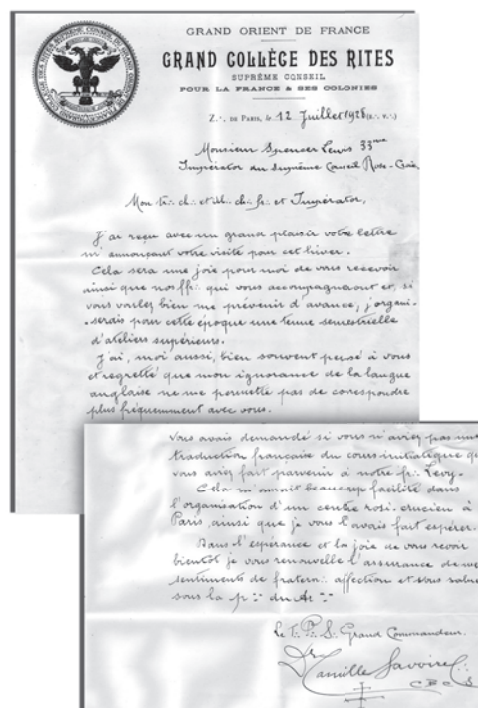 GRAND ORIENT DE FRANCE
GRAND COLLÈGE DES RITES
SUPRÊME CONSEIL
POUR LA FRANCE & SES COLONIES
Z∴ DE PARIS, le 12 Juillet 1928 (E∴ V∴)
Monsieur Spencer Lewis 33ème
Imperator au Suprême Conseil Rose-Croix
Mon tr∴ ch∴ et ill∴ ch∴ fr∴ et Imperator,
J'ai reçu avec un grand plaisir votre lettre
m'annonçant votre visite pour cet hiver.
Cela sera une joie pour moi de vous recevoir
ainsi que nos ff∴ qui vous accompagneront et, si
vous voulez bien me prévenir d'avance, j'organi-
-serais pour cette époque une tenue semestrielle
d'ateliers supérieurs.
J'ai, moi aussi, bien souvent pensé à vous
et regretté que mon ignorance de la langue
anglaise ne me permette pas de correspondre
plus fréquemment avec vous.
vous avais demandé si vous n'aviez pas une
traduction française du cours initiatique que
vous aviez fait parvenir à notre fr∴ Levy.
Cela m'aurait beaucoup facilité dans
l'organisation d'un centre rosi-crucien à
Paris, ainsi que je vous l'avais fait espérer.
Dans l'espérance et la joie de vous revoir
bientôt je vous renouvelle l'assurance de mes
sentiments de fratern∴ affection et vous salue
sous la
Le T∴ P∴ S∴ Grand Commandeur
Dr Camille Savoire
C B C S